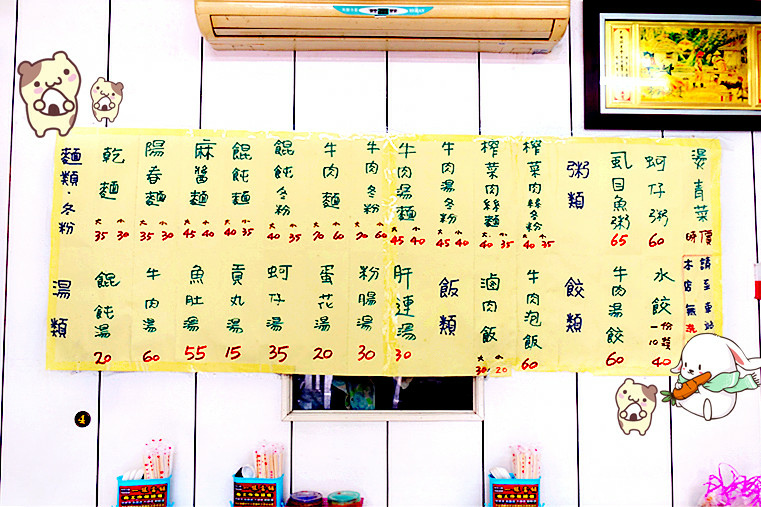 麵類.冬粉
乾麵 大35 小30
陽春麵 大35 小30
麻醬麵 大45 小40
餛飩麵 大40 小35
餛飩冬粉 大40 小35
牛肉麵 大70 小60
牛肉冬粉 大70 小60
牛肉湯麵 大45 小40
牛肉湯冬粉 大45 小40
榨菜肉絲麵 大40 小35
榨菜肉絲冬粉 大40 小35
粥類
虱目魚粥 65
蚵仔粥 60
燙青菜 時價
湯類
餛飩湯 20
牛肉湯 60
魚肚湯 55
貢丸湯 15
蚵仔湯 35
蛋花湯 20
粉腸湯 30
肝連湯 30
飯類
滷肉飯 大30 小20
牛肉泡飯 60
餃類
牛肉湯餃 60
水餃 一份10顆 40
本店無洗